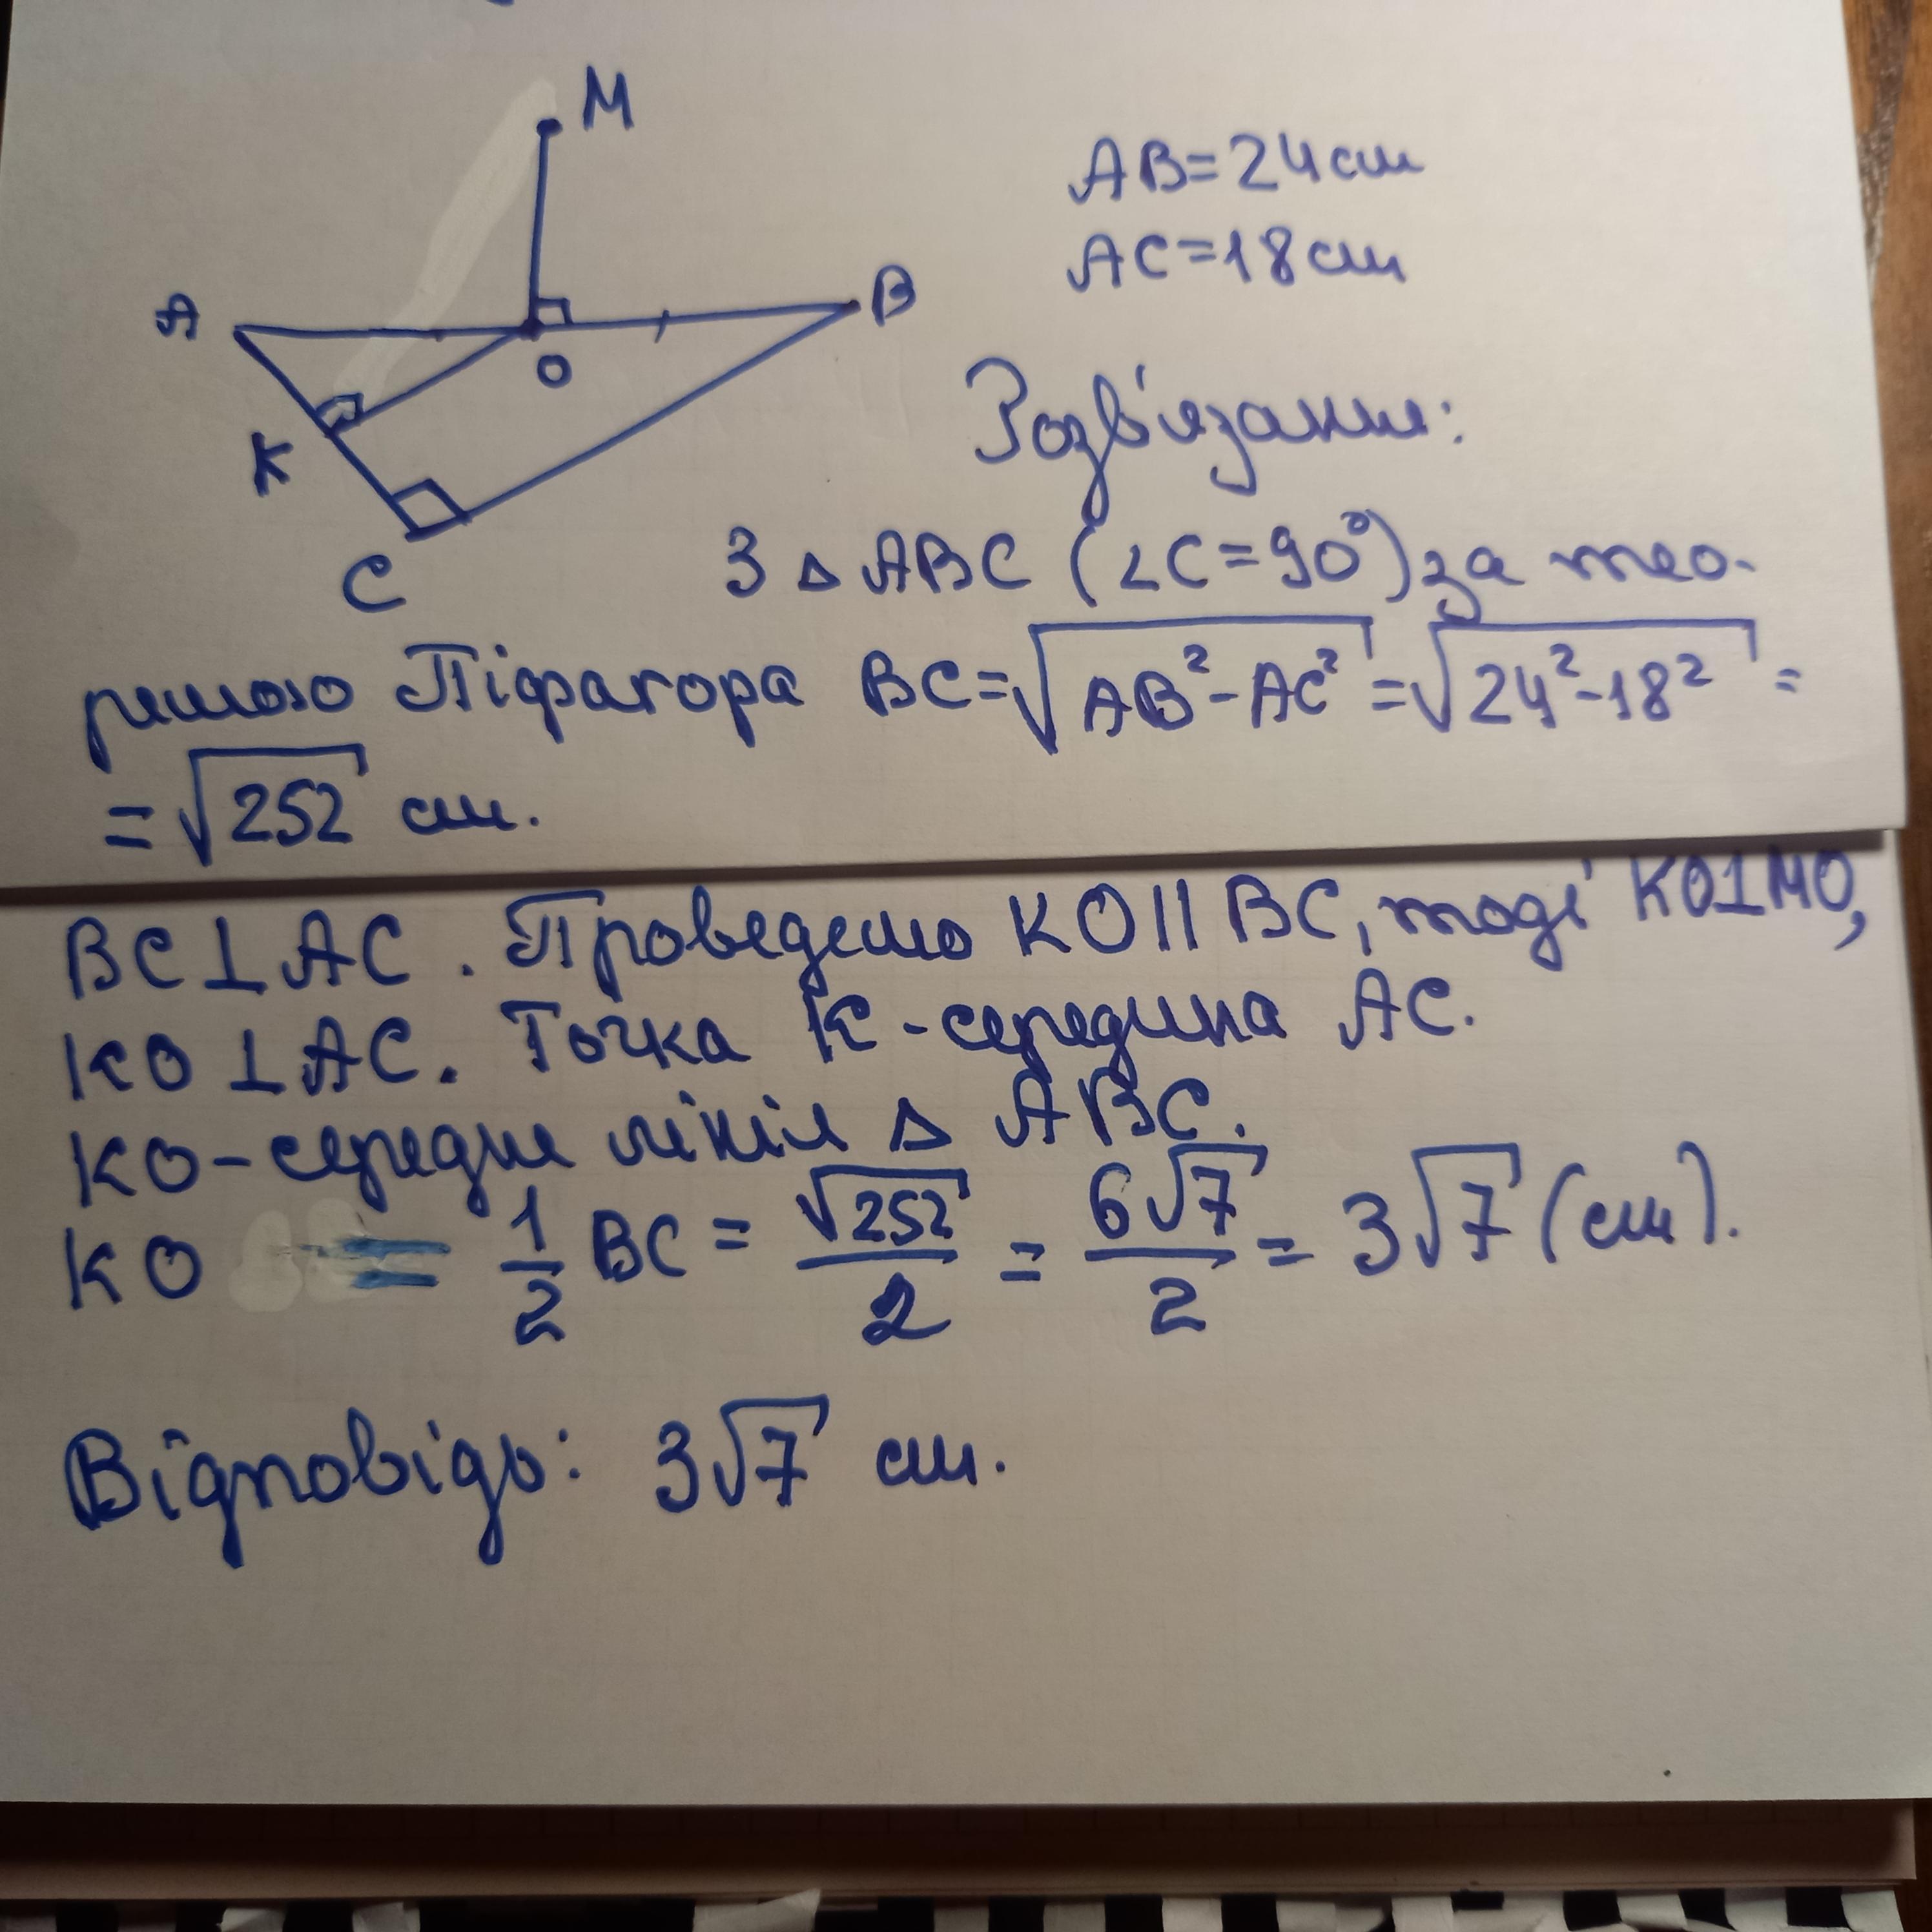 M
A
B
O
K
C
AB=24см
AC=18см
Розв'язання:
З △ ABC (∠C=90°) за тео-
ремою Піфагора BC=√AB²-AC² =√24²-18² =
=√252 см.
BC⊥AC. Проведемо KO||BC, тоді KO⊥MO,
KO⊥AC. Точка K-середина AC.
KO-середня лінія △ ABC.
KO = 1/2 BC = √252/2 = 6√7/2 = 3√7 (см).
Відповідь: 3√7 см.